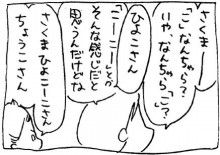 さくまー
「こ」なんちゃら?
いや、なんちゃら「こ」?
ひよこさん
「こーこー」とか
そんな感じだと
思うんだけどな
さくまひよこーこさん
ちょうこさん